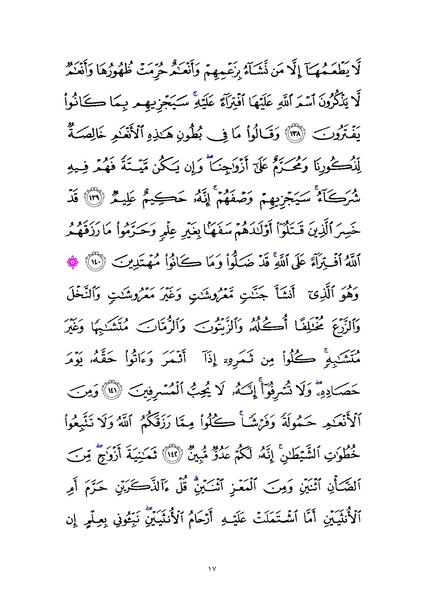 لَّا يَطْعَمُهَآ إِلَّا مَن نَّشَآءُ بِزَعْمِهِمْ وَأَنْعَٰمٌ حُرِّمَتْ ظُهُورُهَا وَأَنْعَٰمٌ
لَّا يَذْكُرُونَ ٱسْمَ ٱللَّهِ عَلَيْهَا ٱفْتِرَآءً عَلَيْهِ ۚ سَيَجْزِيهِم بِمَا كَانُوا۟
يَفْتَرُونَ ١٣٨ وَقَالُوا۟ مَا فِى بُطُونِ هَٰذِهِ ٱلْأَنْعَٰمِ خَالِصَةٌ
لِّذُكُورِنَا وَمُحَرَّمٌ عَلَىٰٓ أَزْوَٰجِنَا ۖ وَإِن يَكُن مَّيْتَةً فَهُمْ فِيهِ
شُرَكَآءُ ۚ سَيَجْزِيهِمْ وَصْفَهُمْ ۚ إِنَّهُۥ حَكِيمٌ عَلِيمٌ ١٣٩ قَدْ
خَسِرَ ٱلَّذِينَ قَتَلُوٓا۟ أَوْلَٰدَهُمْ سَفَهًۢا بِغَيْرِ عِلْمٍ وَحَرَّمُوا۟ مَا رَزَقَهُمُ
ٱللَّهُ ٱفْتِرَآءً عَلَى ٱللَّهِ ۚ قَدْ ضَلُّوا۟ وَمَا كَانُوا۟ مُهْتَدِينَ ١٤٠ ۞
وَهُوَ ٱلَّذِىٓ أَنشَأَ جَنَّٰتٍ مَّعْرُوشَٰتٍ وَغَيْرَ مَعْرُوشَٰتٍ وَٱلنَّخْلَ
وَٱلزَّرْعَ مُخْتَلِفًا أُكُلُهُۥ وَٱلزَّيْتُونَ وَٱلرُّمَّانَ مُتَشَٰبِهًا وَغَيْرَ
مُتَشَٰبِهٍ ۚ كُلُوا۟ مِن ثَمَرِهِۦٓ إِذَآ أَثْمَرَ وَءَاتُوا۟ حَقَّهُۥ يَوْمَ
حَصَادِهِۦ ۖ وَلَا تُسْرِفُوٓا۟ ۚ إِنَّهُۥ لَا يُحِبُّ ٱلْمُسْرِفِينَ ١٤١ وَمِنَ
ٱلْأَنْعَٰمِ حَمُولَةً وَفَرْشًا ۚ كُلُوا۟ مِمَّا رَزَقَكُمُ ٱللَّهُ وَلَا تَتَّبِعُوا۟
خُطُوَٰتِ ٱلشَّيْطَٰنِ ۚ إِنَّهُۥ لَكُمْ عَدُوٌّ مُّبِينٌ ١٤٢ ثَمَٰنِيَةَ أَزْوَٰجٍ ۖ مِّنَ
ٱلضَّأْنِ ٱثْنَيْنِ وَمِنَ ٱلْمَعْزِ ٱثْنَيْنِ ۗ قُلْ ءَآلذَّكَرَيْنِ حَرَّمَ أَمِ
ٱلْأُنثَيَيْنِ أَمَّا ٱشْتَمَلَتْ عَلَيْهِ أَرْحَامُ ٱلْأُنثَيَيْنِ ۖ نَبِّـُٔونِى بِعِلْمٍ إِن
١٧